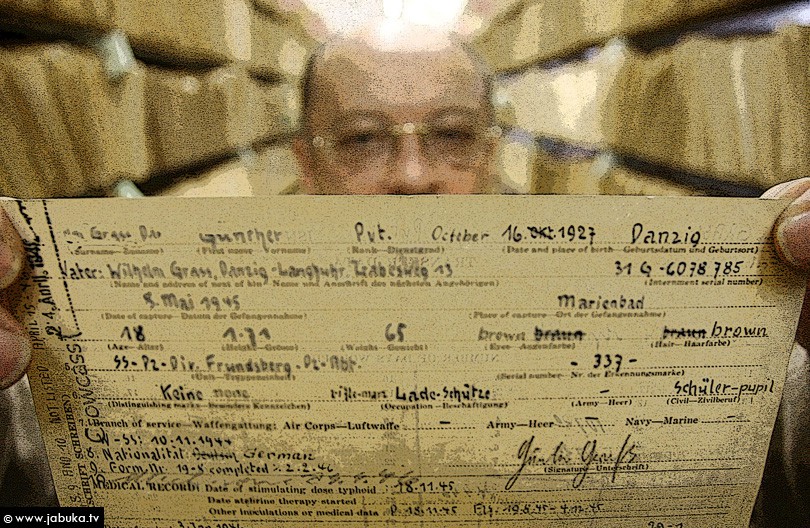 Grass Günther Pvt. October 16. Okt. 1927 Danzig
(Surname—Zuname) (First name—Vorname) (Rank—Dienstgrad) (Date and place of birth—Geburtsdatum und Geburtsort)
Vater: Wilhelm Grass, Danzig-Langfuhr, Labesweg 13 31 G-6078785
(Name and address of next of kin—Name und Anschrift des nächsten Angehörigen) (Internment serial number)
8. Mai 1945 Marienbad
(Date of capture—Datum der Gefangennahme) (Place of capture—Ort der Gefangennahme)
18 1.71 65 brown braun braun brown
(Age—Alter) (Height—Grösse) (Weight—Gewicht) (Eyes—Augenfarbe) (Hair—Haarfarbe)
SS-Pz-Div. Frundsberg. Pz. Abt. - 337 -
(Unit—Truppeneinheit) (Serial number—Nr. der Erkennungsmarke)
Keine none Lade-Schütze - Schüler-pupil
(Distinguishing marks—Besondere Kennzeichen) (Occupation—Beschäftigung) (Army—Heer) (Civil—Zivilberuf)
7. Branch of service—Waffengattung: Air Corps—Luftwaffe - Army—Heer Navy—Marine -
W-SS: 10.11.1944
8. Nationalität German
9. Form Nr. 19-8 completed 2.2.46
(Signature—Unterschrift)
MEDICAL RECORD: Date of stimulating dose typhoid 18.11.45
Date atebrine therapy started
Other inoculations or medical data
24. April 1946
© www.jabuka.tv